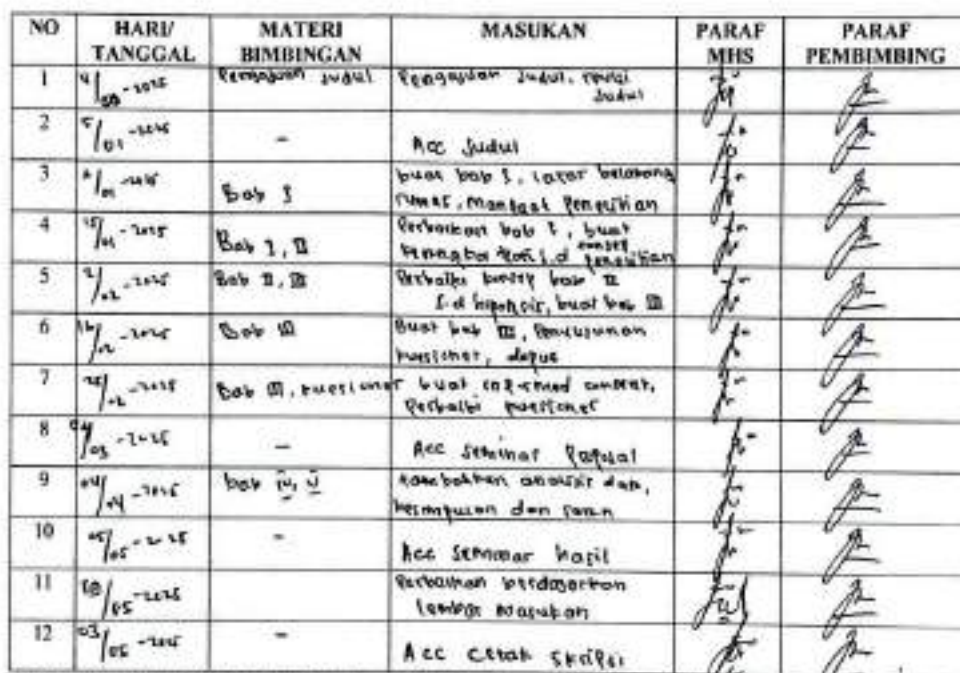 NO HARI/ TANGGAL MATERI BIMBINGAN MASUKAN PARAF MHS PARAF PEMBIMBING
1 -2025 Pengajuan Judul Pengajuan Judul, revisi
Judul
2 5/01 -2025 - Acc Judul
3 Bab I buat bab I, latar belakang
, manfaat penelitian
4 15/01 -2025 Bab I, II Perbaikan bab I, buat
kerangka teori s.d konsep penelitian
5 2/02 -2025 Bab II, III Perbaiki konsep bab II
s.d hipotesis, buat bab III
6 16/02 -2025 Bab III Buat bab III, Penyusunan
kuesioner, dapus
7 25/02 -2025 Bab III, kuesioner buat informed consent,
Perbaiki kuesioner
8 04/03 -2025 - Acc Seminar Proposal
9 04/04 -2025 bab IV, V tambahkan analisis data,
kesimpulan dan saran
10 05/05 -2025 - Acc Seminar Hasil
11 /05 -2025 Perbaikan berdasarkan
lembar masukan
12 03/05 -2025 - Acc Cetak Skripsi